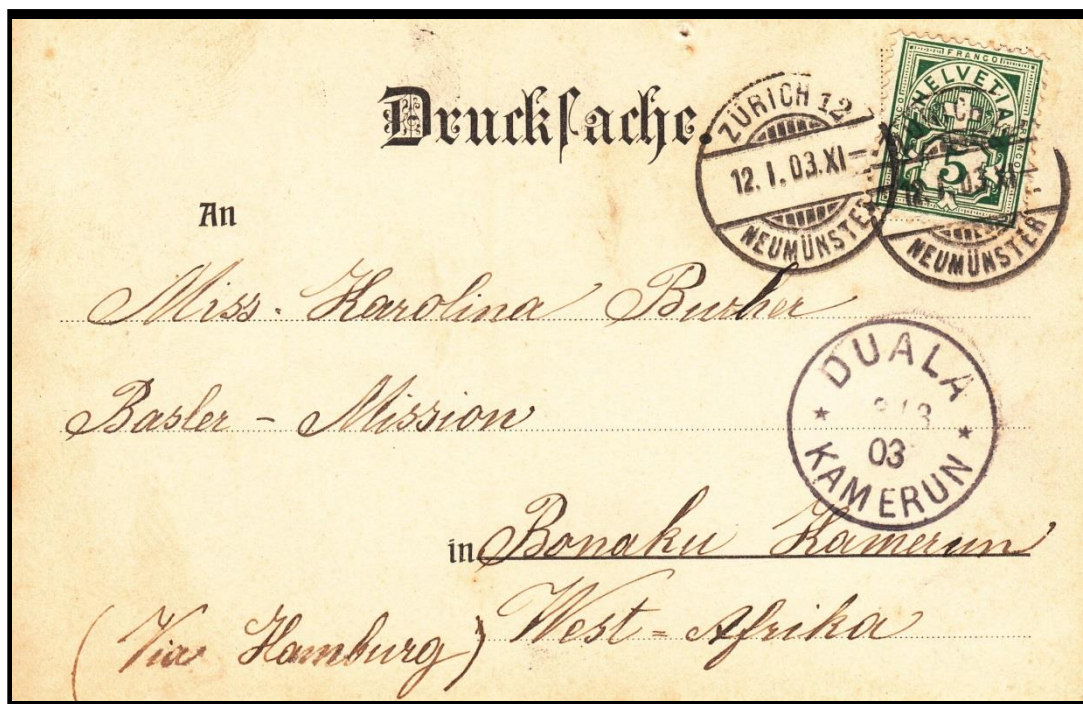 Drucksache.
ZÜRICH 12
12. I. 03. XI
NEUMÜNSTER
FRANCO
HELVETIA
5
NEUMÜNSTER
An
Miss. Karolina
Basler - Mission
DUALA
03
KAMERUN
in Bonaku Kamerun
(Via Hamburg) West-Afrika